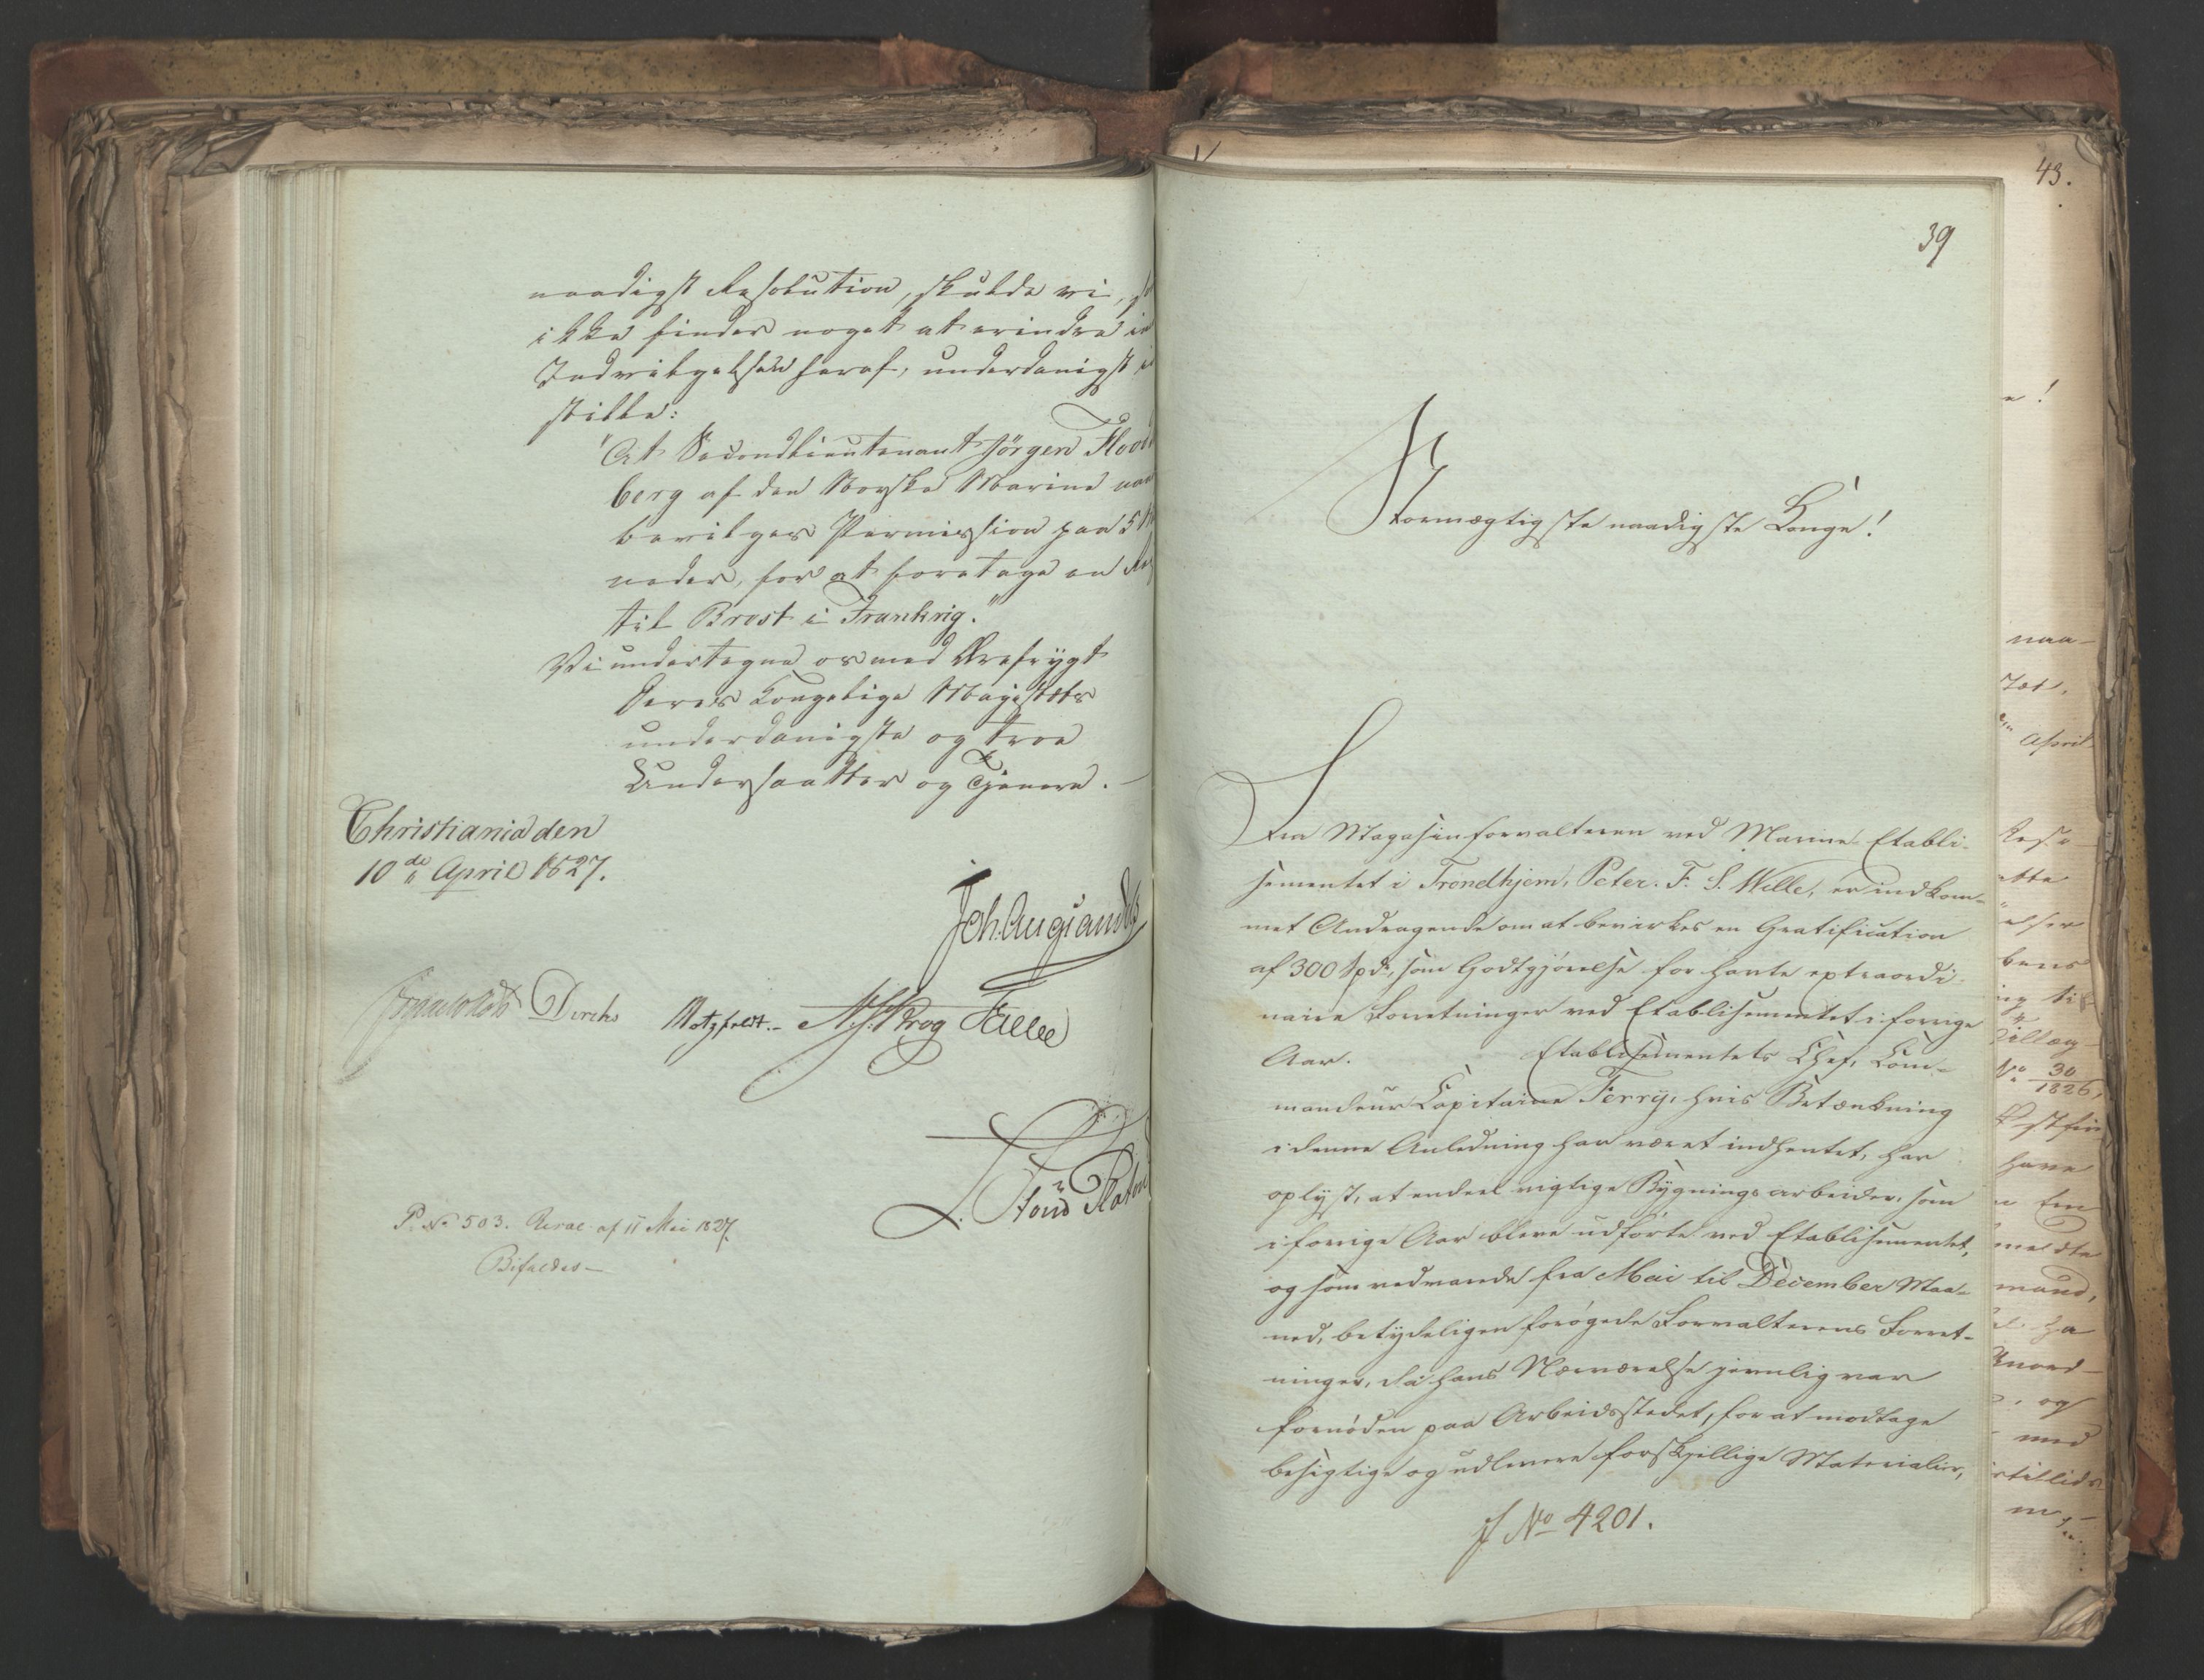 naadigst Resolution, skulde vi, 
ikke finder noget at erindre
Indvilgelsen heraf, underdanigst
stille:
"At Secondlieutenant Jörgen Flood
berg af den Norske Marine
bevilges Permission paa 5
neder, for at foretage en
til Brest i Frankrig."
Vi undertegne os med Ærefrygt
Deres Kongelige Majestæts
underdanigste og troe
Undersaatter og Tjenere.
Christiania den
10de April 1827.
Diriks Motzfeldt. Krog
Platou
P. No 503. Resol. af 11 Mai 1827.
Bifaldes
43.
39
Stormægtigste naadigste Konge!
Fra Magasinforvalteren ved Marine-Etabli-
sementet i Trondhjem, Peter. F. S. Wille, er indkom-
met Andragende om at bevirkes en Gratification
af 300 Spd, som Godtgjørelse for havte extraordi-
naire Forretninger ved Etablisementet i forrige
Aar. Etablisementets Chef, Com-
mandeur Capitaine Ferry, hvis Betænkning
i denne Anledning har været indhentet, har
oplyst, at endeel vigtige Bygningsarbeider, som
i forrige Aar bleve udførte ved Etablisementet,
og som vedvarede fra Mai til December Maa-
ned, betydeligen forøgede Forvalterens Forret-
ninger, da hans Nærværelse jevnlig var
fornøden paa Arbeidsstedet, for at modtage
besigtige og udlevere forskjellige Materialier,
J No 4201.
naa-
April
30
1826,
have
og
med